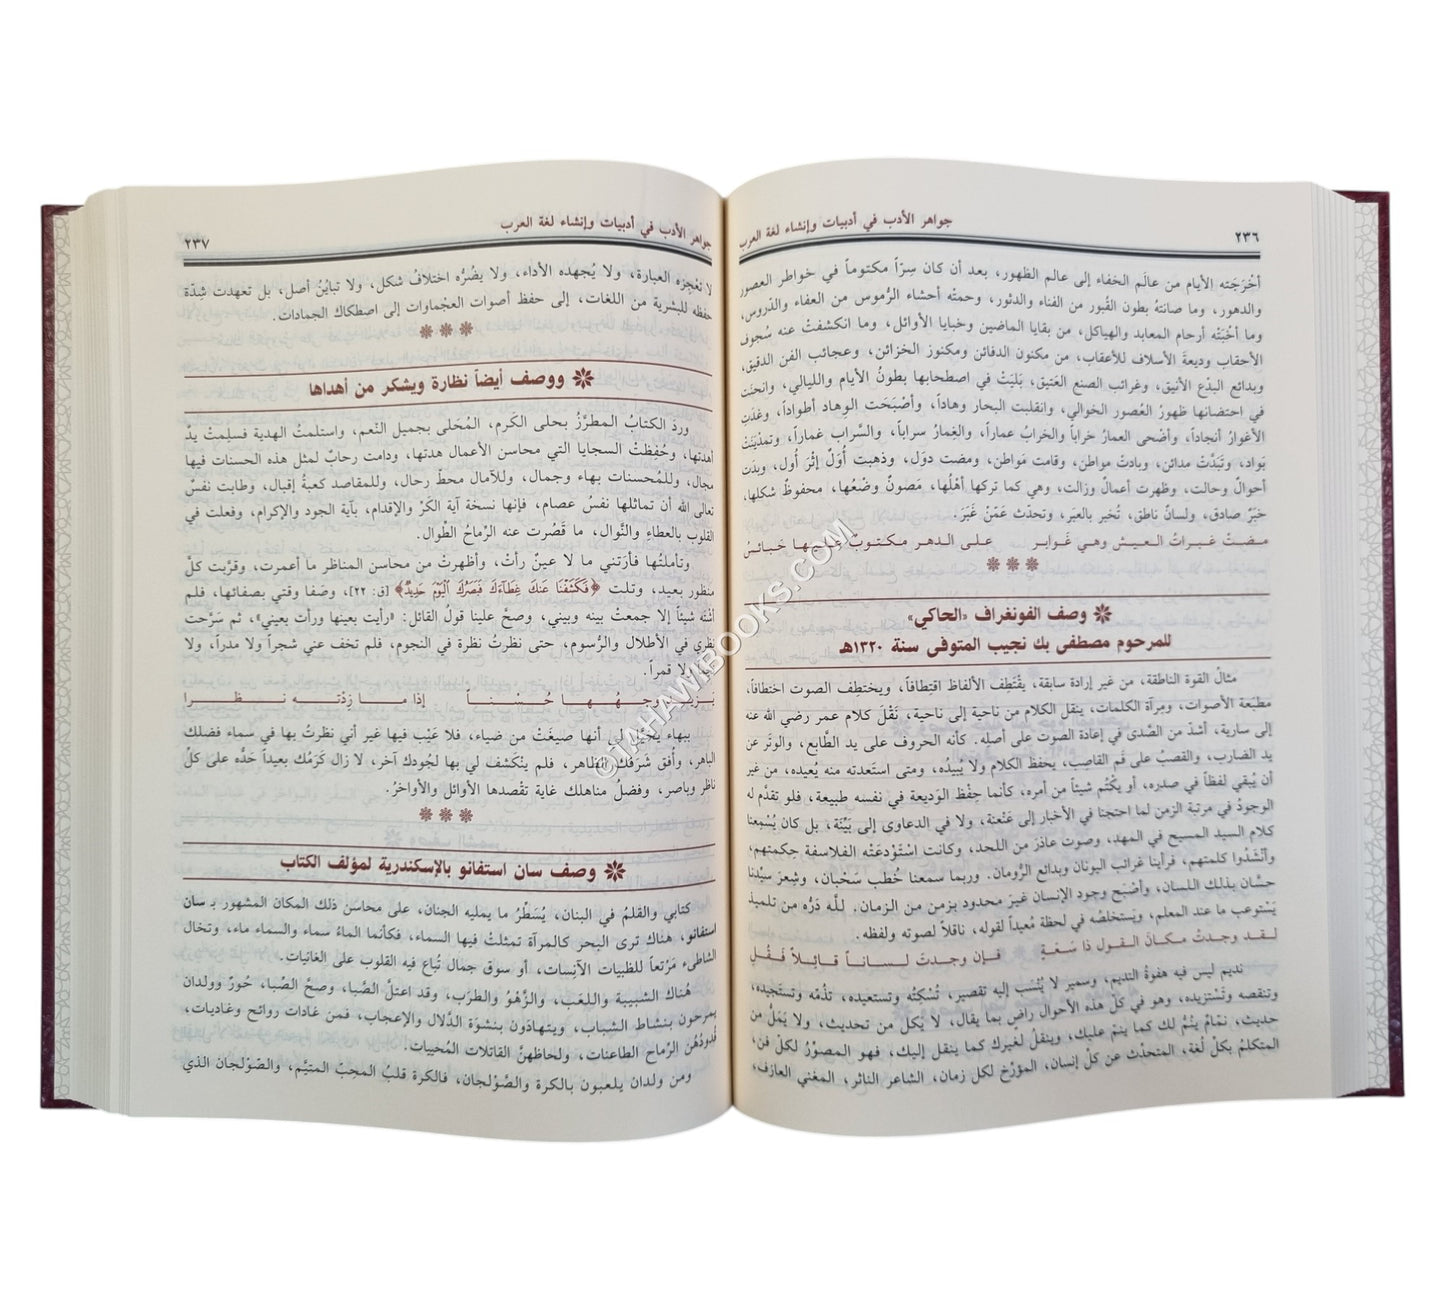 ٢٣٦
جواهر الأدب في أدبيات وإنشاء لغة العرب
أخْرَجَته الأيام من عالَم الخفاء إلى عالم الظهور، بعد أن كان سِرّاً مكتوماً في خواطر العصور
والدهور، وما صانتهُ بطون القُبور من الفناء والدثور، وحمتْه أحشاء الرُّموس من العفاء والدّروس،
وما أخْبَتْه أرحام المعابد والهياكل، من بقايا الماضين وخبايا الأوائل، وما انكشفتْ عنه سُجوف
الأحقاب وديعةَ الأسلاف للأعقاب، من مكنون الدفائن ومكنوز الخزائن، وعجائب الفن الدقيق،
وبدائع البدْع الأنيق، وغرائب الصنع العَتيق، بَليَتْ في اصطحابها بطونُ الأيام والليالي، وانحنَت
في احتضانها ظهورُ العُصور الخوالي، وانقلبت البحار وهاداً، وأصْبَحَت الوِهاد أطواداً، وغدَتِ
الأغوارُ أنجاداً، وأضْحى العمارُ خراباً والخرابُ عماراً، والغِمارُ سراباً، والسَّراب غماراً، وتمدْيَنَتْ
بَواد، وتَبَدَّتْ مدائن، وبادتْ مواطن، وقامت مَواطن، ومضت دوَل، وذهبت أُوَلٌ إثْرَ أُول، وبدَت
أحوالٌ وحالت، وظهرت أعمالٌ وزالت، وهي كما تركها أهْلُها، مَصونٌ وضْعُها، محفوظٌ شكلها،
خبَرٌ صادق، ولسانٌ ناطق، تُخبر بالعبَر، وتحدّث عَمّنْ غبَرَ.
مـضـتْ غـبـراتُ الـعـيـش وهـي غَـوابـر علـى الـدهـر مـكـتـوبٌ عـلـيـهـا حَـبـائـسُ
❋ ❋ ❋
❋ وصف الفونغراف «الحاكي»
للمرحوم مصطفى بك نجيب المتوفى سنة ١٣٢٠هـ
مثالُ القوة الناطقة، من غير إرادة سابقة، يقْتَطِف الألفاظ اقتطافاً، ويختطِف الصوت اختطافاً،
مطبَعة الأصوات، ومِرآة الكلمات، ينقل الكلام من ناحية إلى ناحية، نَقْلَ كلام عمر رضي الله عنه
إلى سارية، أشدّ من الصَّدى في إعادة الصوت على أصله. كأنه الحروف على يد الطَّابع، والوتَر عن
يد الضارب، والقصبُ على فَم القاصِب، يحفظ الكلام ولا يُبيدُه، ومتى استَعدته منه يُعيده، من غير
أن يُبقي لفظاً في صدره، أو يكْتُم شيئاً من أمره، كأنما حِفْظ الوَديعة في نفسه طبيعة، فلو تقدَّم له
الوجودُ في مرتبة الزمن لما احتجنا في الأخبار إلى عَنْعنة، ولا في الدعاوى إلى بَيِّنَة، بل كان يُسْمِعنا
كلام السيد المسيح في المهد، وصوت عاذَرَ من اللحد، وكانت اسْتَوْدعَتْه الفلاسفة حِكمتهم،
وأنْشَدُوا كلمتهم، فرأينا غرائب اليونان وبدائع الرُّومان. وربما سمعنا خُطب سَحْبان، وشِعرَ سيِّدنا
حسَّان بذلك اللسان، وأصْبح وجود الإنسان غيرَ محدود بزمن من الزمان. للَّه دَرُّه من تلميذ
يَسْتوعب ما عند المعلم، ويَستخلصُه في لحظة مُعيداً لقوله، ناقلاً لصوته ولفظه.
لـقـد وجـدتُ مـكـانَ الـقـول ذا سَـعَـةٍ فـإن وجـدتَ لـسـانـاً قـائِـلاً فَـقُـلِ
نديم ليس فيه هفوةُ النديم، وسمير لا يُنْسَب إليه تقصير، تُسْكِتُه وتستعيده، تذُمّه وتستَجيده،
وتنقصه وتَسْتزيده، وهو في كلّ هذه الأحوال راضٍ بما يقال، لا يَكلّ من تحديث، ولا يَمَلُّ من
حديث، نمَّامٌ ينُمُّ لك كما ينمّ عليك، وينقلُ لغيرك كما ينقل إليك، فهو المصوِّرُ لكلّ فن،
المتكلمُ بكلّ لغة، المتحدّث عن كلّ إنسان، المؤرّخ لكل زمان، الشاعر الناثر، المغني العازف،
جواهر الأدب في أدبيات وإنشاء لغة العرب
٢٣٧
لا تعْجزه العبارة، ولا يُجهده الأداء، ولا يضُرُّه اختلافُ شكل، ولا تبايُن أصل، بل تعهدت شِدّة
حفظه للبشرية من اللغات، إلى حفظ أصوات العجْماوات إلى اصطكاك الجمادات.
❋ ❋ ❋
❋ ووصف أيضاً نظارة ويشكر من أهداها
وردَ الكتابُ المطرَّزُ بحلى الكَرم، المُحَلى بجميل النّعم، واستلمتُ الهدية فسلِمتْ يدٌ
أهدتها، وحُفِظتْ السجايا التي محاسن الأعمال هدتها، ودامت رحابٌ لمثل هذه الحسنات فيها
مجال، وللمُحسنات بهاء وجمال، وللآمال محطّ رحال، وللمقاصد كعبةُ إقبال، وطابت نفسٌ
تعالى الله أن تماثلها نفسُ عصام، فإنها نسخة آية الكَرّ والإقدام، بآية الجود والإكرام، وفعلت في
القلوب بالعطاءِ والنَّوال، ما قَصُرت عنه الرِّماحُ الطِّوال.
وتأملتُها فأرَتني ما لا عينٌ رأتْ، وأظهرتْ من محاسن المناظر ما أعمرت، وقرَّبت كلَّ
منظور بعيد، وتلت ﴿فَكَشَفْنَا عَنكَ غِطَآءَكَ فَبَصَرُكَ ٱلْيَوْمَ حَدِيدٌ﴾ [ق: ٢٢]، وصَفا وقتي بصفائها، فلم
أشَه شيئاً إلا جمعتْ بينه وبيني، وصحّ علينا قولُ القائل: «رأيت بعينها ورأت بعيني»، ثم سَرَّحت
نظري في الأطلال والرُّسوم، حتى نظرتُ نظرة في النجوم، فلم تخف عني شجراً ولا مدراً، ولا
ولا قمراً.
يَـزيـدك وجـهُـهـا حُـسـنـاً إذا مـا زدْتَـه نـظـرا
ببهاء يخيّل لي أنها صيغَتْ من ضياء، فلا عَيْب فيها غير أني نظرتُ بها في سماء فضلك
الباهر، وأفق شَرَفك الظاهر، فلم ينْكشف لي بها لجُودك آخر، لا زال كَرَمُك بعيداً حدَّه على كلّ
ناظر وباصر، وفضلُ مناهلك غاية تقْصدها الأوائل والأواخرُ.
❋ ❋ ❋
❋ وصف سان استفانو بالإسكندرية لمؤلف الكتاب
كتابي والقلمُ في البنان، يُسَطّرُ ما يمليه الجنان، على محاسَن ذلك المكان المشهور بـ سان
استفانو، هناك ترى البحر كالمرآة تمثلتْ فيها السماء، فكأنما الماءُ سماء والسماء ماء، وتخال
الشاطىء مَرْتعاً للظبيات الآنِسات، أو سوق جمال تُباع فيه القلوب على الغانيات.
هُناك الشبيبة واللِعَب، والزَّهْوُ والطرَب، وقد اعتلّ الصِّبا، وصحّ الصِّبا، حُورٌ ووِلدان
يمرحون بنشاط الشباب، ويتهادَون بنشوَة الدَّلال والإعجاب، فمن غادات روائح وغاديات،
قدودُهُن الرِّماح الطاعنات، ولحاظهنَّ القاتلات المُحييات.
ومن ولدان يلعبون بالكرة والصَّوْلجان، فالكرة قلبُ المحبّ المتيَّم، والصّوْلجان الذي
©TAHAWIBOOKS.COM